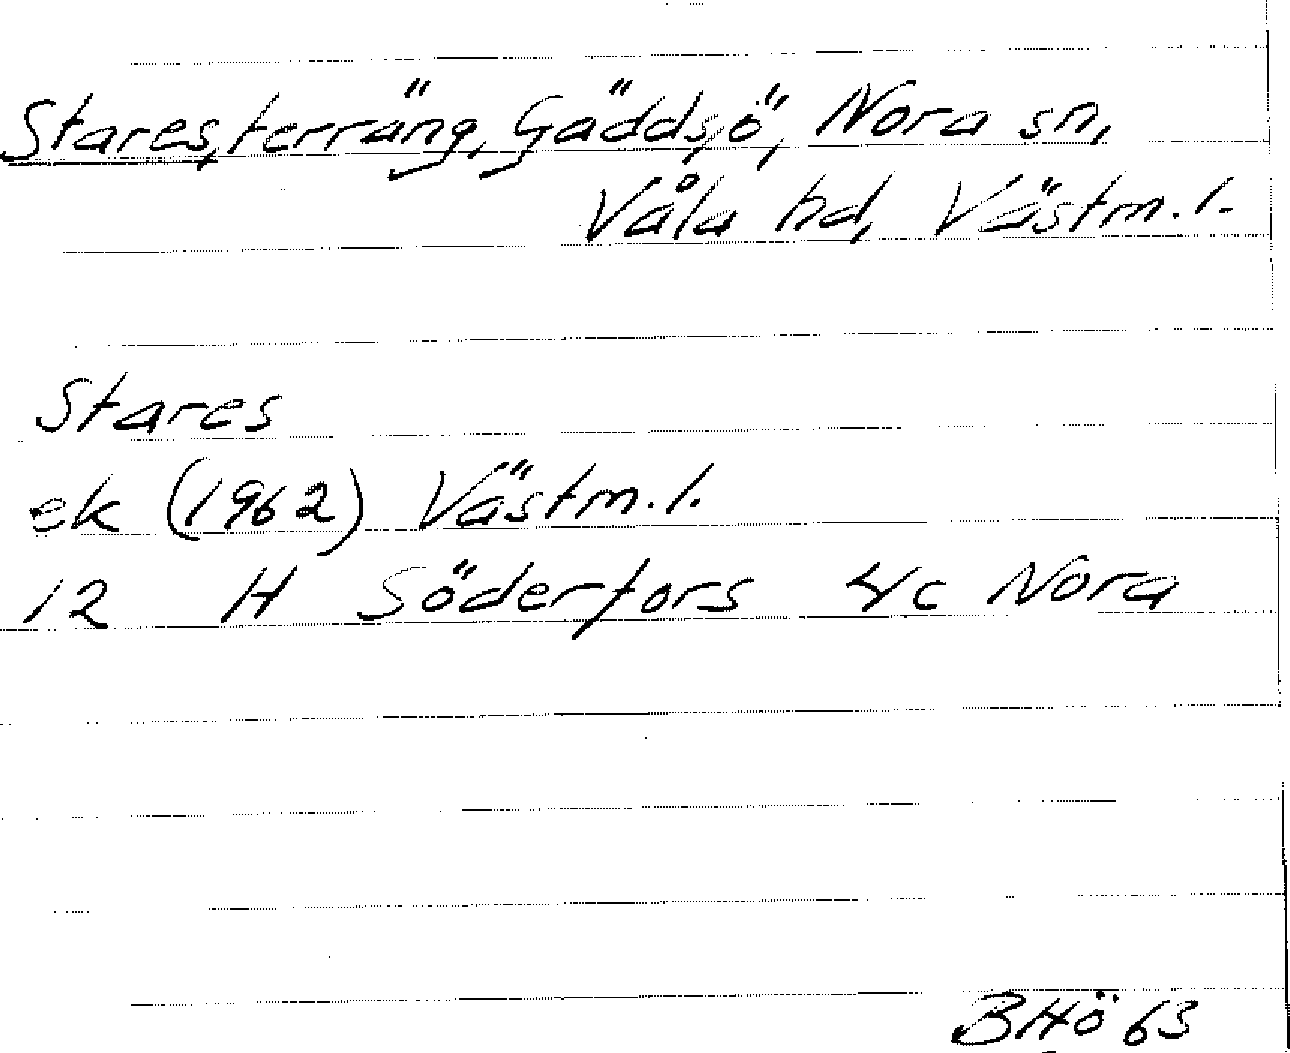 Stares, terräng, Gäddsjö, Nora sn,
Våla hd, Västm. l.
Stares
ek (1962) Västm. l.
12 H Söderfors 4c Nora
BHö 63